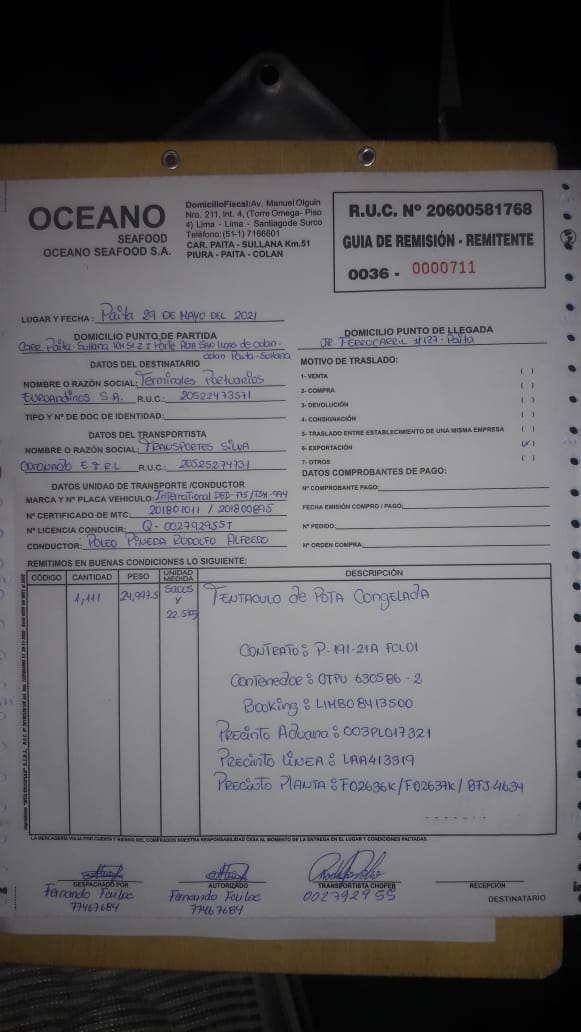 OCEANO
SEAFOOD
OCEANO SEAFOOD S.A.
DomicilioFiscal:Av. Manuel Olguin
Nro. 211, Int. 4, (Torre Omega- Piso
4) Lima - Lima - Santiagode Surco
Teléfono:(51-1) 7166601
CAR. PAITA - SULLANA Km.51
PIURA - PAITA - COLAN
R.U.C. Nº 20600581768
GUIA DE REMISIÓN - REMITENTE
0036 - 0000711
LUGAR Y FECHA : Paita 29 DE MAYO DEL 2021
DOMICILIO PUNTO DE PARTIDA
Carr. Paita Sullana KM 51 Z I Parte Alta San Lucas de colan-
colan Paita-Sullana
DOMICILIO PUNTO DE LLEGADA
JR. FERROCARRIL #127- Paita
DATOS DEL DESTINATARIO
NOMBRE O RAZÓN SOCIAL: Terminales Portuarios
EUROANDINOS S.A. R.U.C.: 20522473571
TIPO Y Nº DE DOC DE IDENTIDAD:
DATOS DEL TRANSPORTISTA
NOMBRE O RAZÓN SOCIAL: TRANSPORTES SILVA
CORONADO E I R L R.U.C.: 20525274731
DATOS UNIDAD DE TRANSPORTE /CONDUCTOR
MARCA Y Nº PLACA VEHICULO: International
Nº CERTIFICADO DE MTC: 201801011 / 201800895
Nº LICENCIA CONDUCIR: Q- 002792955T
CONDUCTOR: POLEO PINEDA RODOLFO ALFREDO
MOTIVO DE TRASLADO:
1- VENTA ( )
2- COMPRA ( )
3- DEVOLUCIÓN ( )
4- CONSIGNACIÓN ( )
5- TRASLADO ENTRE ESTABLECIMIENTO DE UNA MISMA EMPRESA ( )
6- EXPORTACIÓN (✓)
7- OTROS ( )
DATOS COMPROBANTES DE PAGO:
Nº COMPROBANTE PAGO:
FECHA EMISIÓN COMPRO / PAGO:
Nº PEDIDO:
Nº ORDEN COMPRA:
REMITIMOS EN BUENAS CONDICIONES LO SIGUIENTE:
CÓDIGO CANTIDAD PESO UNIDAD MEDIDA DESCRIPCIÓN
1,111 24,997.5 SACOS X 22.5kg TENTACULO de POTA CONGELADA
CONTRATO: P-191-21A FCL01
Contenedor: OTPU 630586 - 2
Booking: LIMB08413500
PRECINTO Aduana: 003PL017321
PRECINTO LINEA: LAA413319
PRECINTO PLANTA: F02636K/F02637K/BFJ4634
LA MERCADERÍA VIAJA POR CUENTA Y RIESGO DEL COMPRADOR NUESTRA RESPONSABILIDAD CESA AL MOMENTO DE LA ENTREGA EN EL LUGAR Y CONDICIONES PACTADAS.
DESPACHADO POR
Fernando
77467684
AUTORIZADO
Fernando
77467684
TRANSPORTISTA CHOFER
002792955
RECEPCIÓN
DESTINATARIO